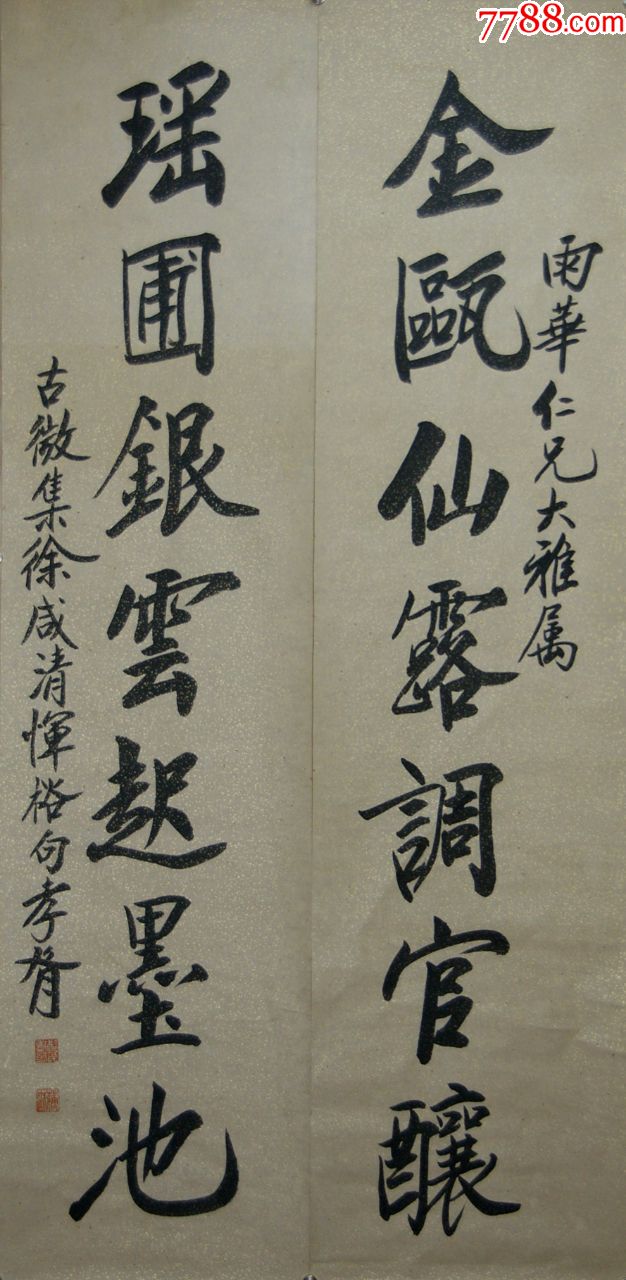 7788.com
雨華仁兄大雅属
金甌仙露調官釀
瑶圃銀雲起墨池
古微集徐咸清惲格句孝胥